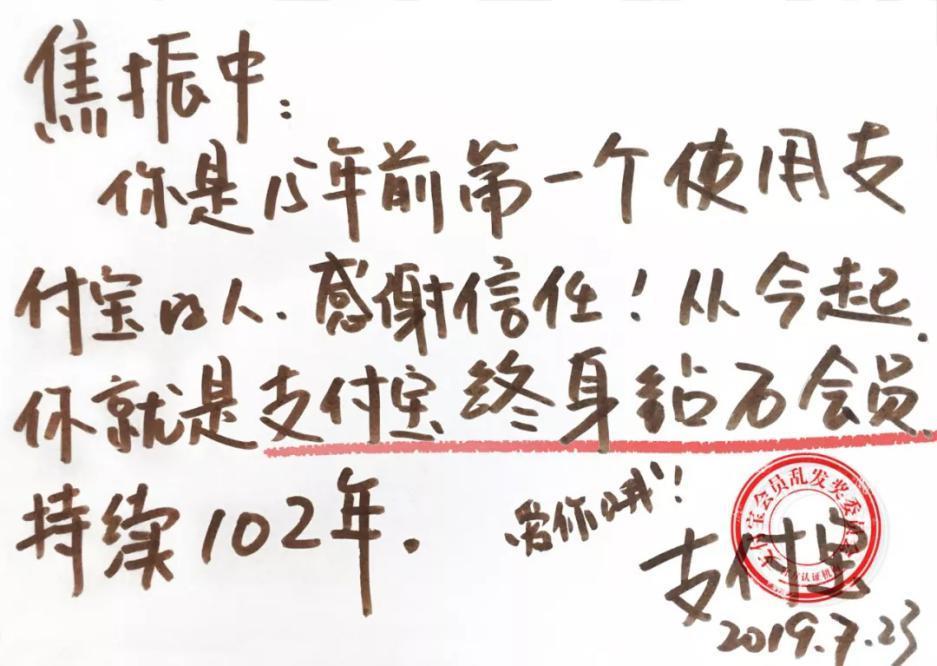 焦振中:
你是15年前第一个使用支
付宝的人.感谢信任!从今起.
你就是支付宝终身钻石会员.
持续102年.
爱你哦!
支付宝会员乱发奖委员会
支付宝
2019.7.23